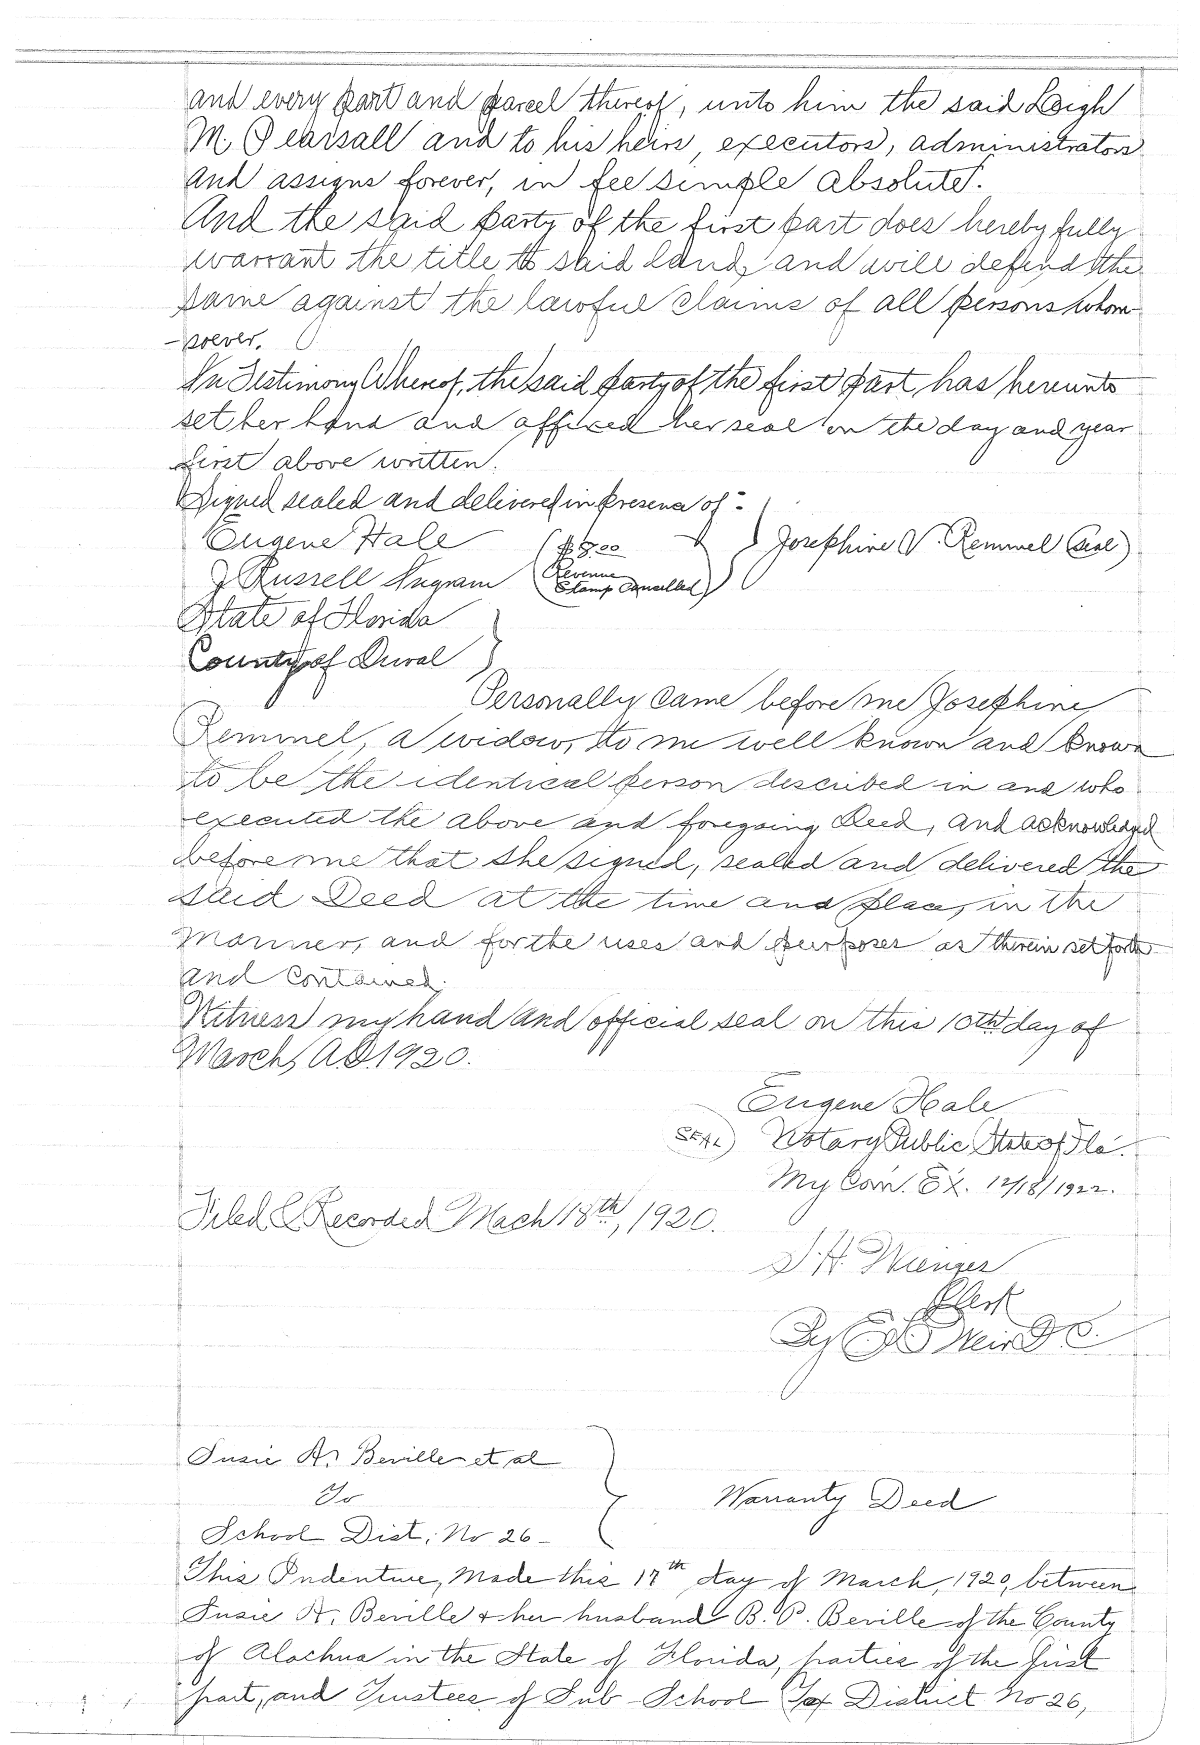 and every part and parcel thereof, unto him the said Leigh
M. Pearsall and to his heirs, executors, administrators
and assigns forever, in fee simple absolute.
And the said party of the first part does hereby fully
warrant the title to said land, and will defend the
same against the lawful claims of all persons whom-
-soever.
In Testimony Whereof, the said party of the first part has hereunto
set her hand and affixed her seal on the day and year
first above written.
Signed sealed and delivered in presence of:
Eugene Hale ($8.00 Josephine V. Remmel (seal)
J Russell Ingram Revenue Stamp Cancelled)
State of Florida
County of Duval
Personally came before me Josephine
Remmel, a widow, to me well known and known
to be the identical person described in and who
executed the above and foregoing Deed, and acknowledged
before me that she signed, sealed and delivered the
said Deed at the time and place, in the
manner, and for the uses and purposes as therein set forth
and contained.
Witness my hand and official seal on this 10th day of
March, A.D. 1920.
Eugene Hale
SEAL Notary Public State of Fla.
My Com. Ex. 12/18/1922.
Filed & Recorded Mach 18th, 1920.
S. H. Wienges
Clerk
By Weir D.C.
Susie A. Beville et al
To Warranty Deed
School Dist. No 26-
This Indenture, Made this 17th day of March, 1920, between
Susie A. Beville & her husband B. P. Beville of the County
of Alachua in the State of Florida, parties of the first
part, and Trustees of Sub School Tax District No 26,